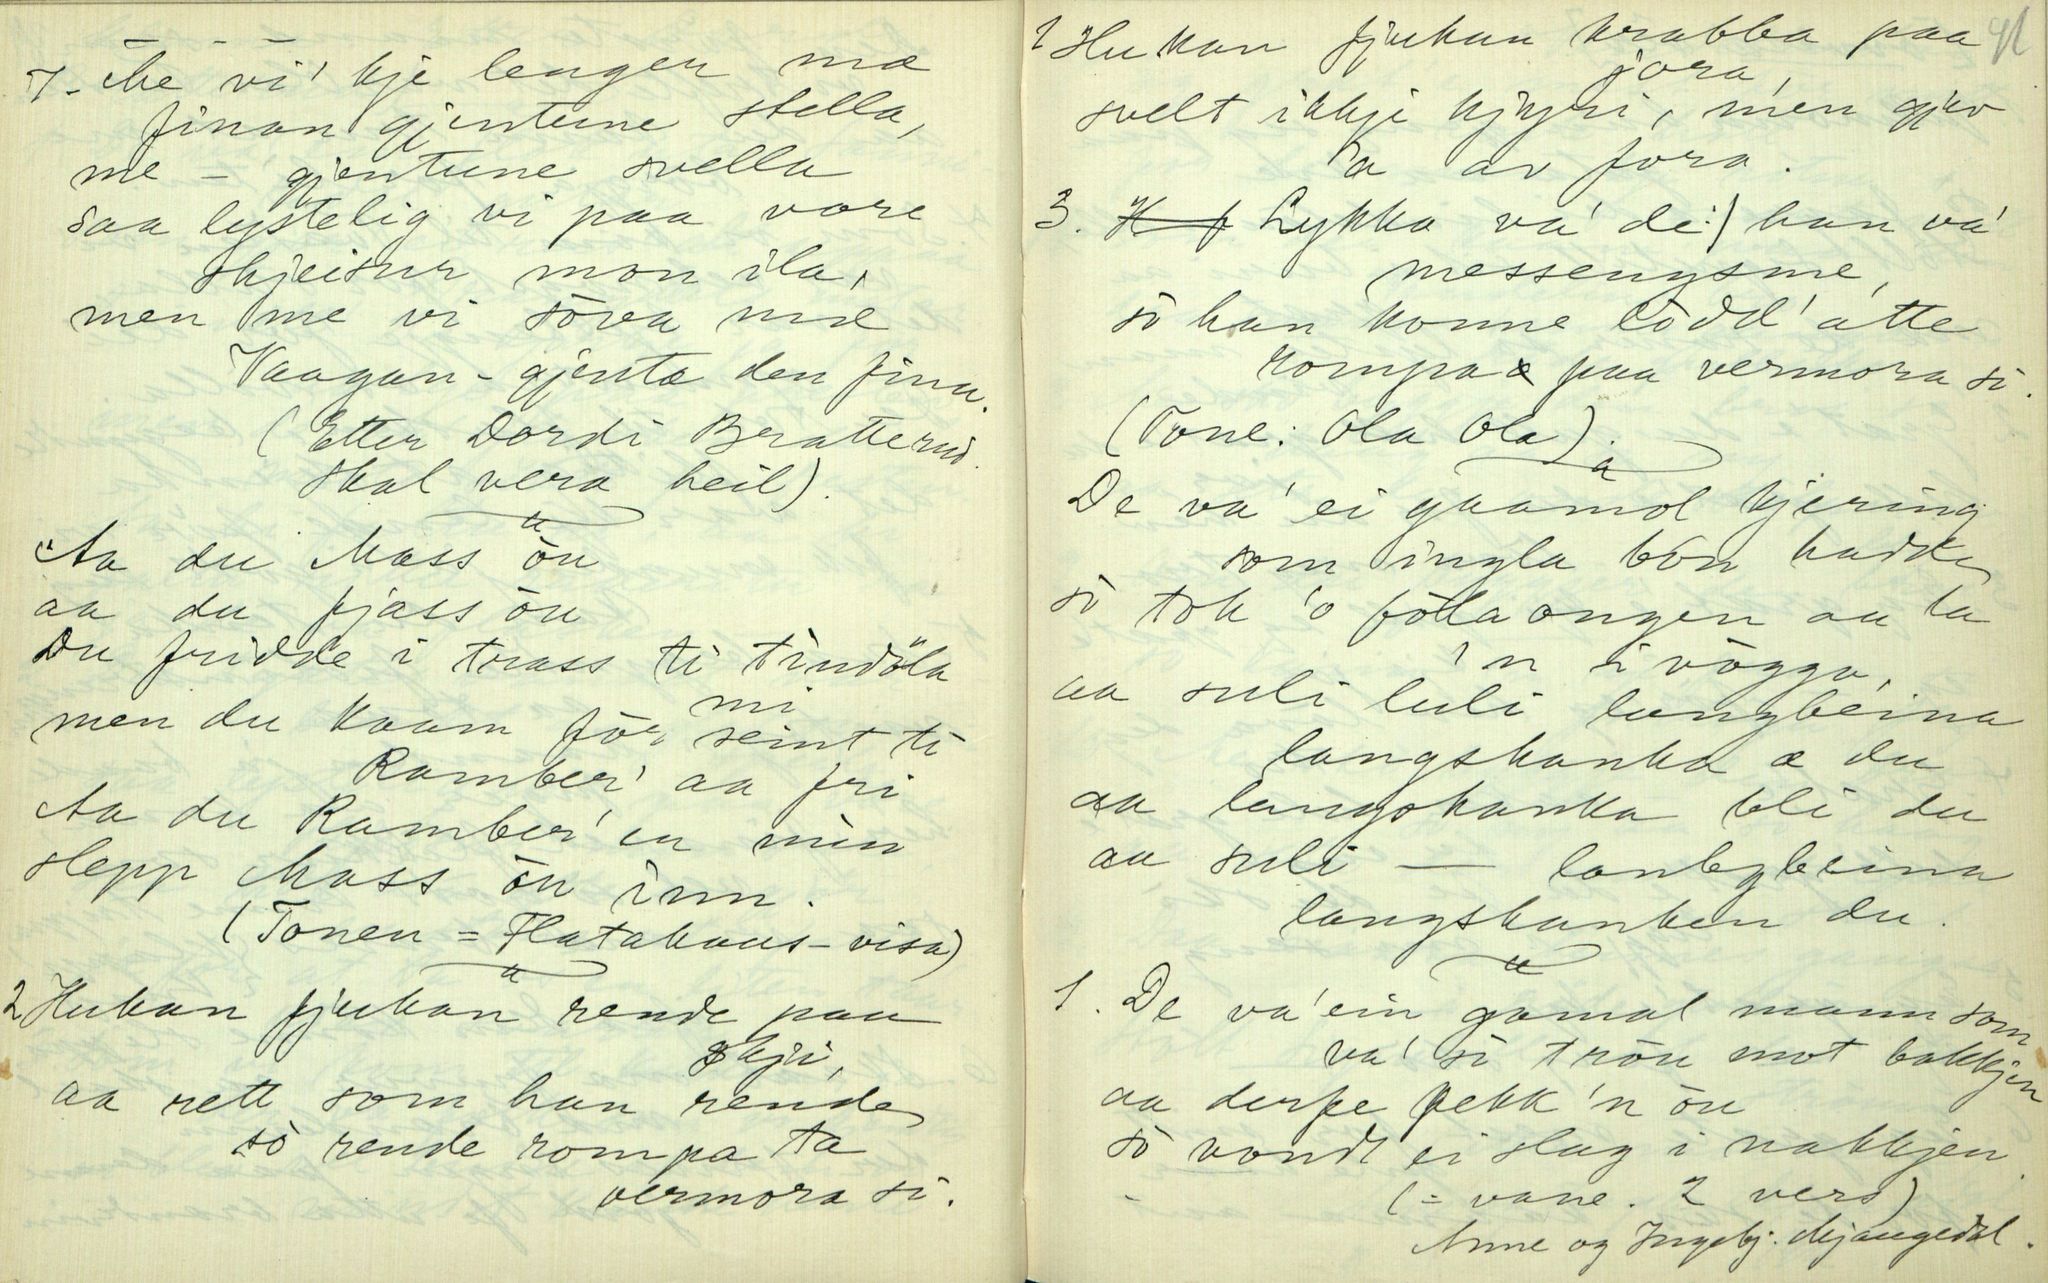 7. Me vi' kje lenger mæ
finan gjentune stella,
me – gjentune svella
saa lystelig vi paa vore
skjeisur mon ila,
men me vi sòva mæ
Vaagan-gjentæ den fina.
(Etter Dordi Bratterud.
skal vera heil).
Aa du Mass òu
aa du fjass òu
Du fridde i trass ti Tindöla
men du kaam för seint ti
mi
Ramber' aa fri
Aa du Ramber' en min
slepp Mass òu inn.
(Tonen = Flatakaas-visa)
2 Hukan fjukan rende paa
skji,
aa rett som han rende
sò rende rompa ta
vermora si.
1 Hukan fjukan krabba paa
jora,
svelt ikkje kjyri, men gjev
'a av fora.
3. Lykka va' de:/ han va'
messengsme,
sò han konne lödd' atte
rompa paa vermora si.
(Tone: Ola Ola).
De va' ei gaamol kjering
som ingla bön hadde
sò tok 'oföla ongen aa la
'n i vögga,
aa suli luli langbeina
langskanka æ du
aa langskanka bli du
aa suli — lanbgbeina
langskanken du.
1. De va' ein gamal mann som
va' sò tròu mot bakkjen
aa derfe fekk 'n òu
sò vondt ei slag i nakkjen.
(= vane. 2 vers)
Anne og Ingebj. Mjaugedal.